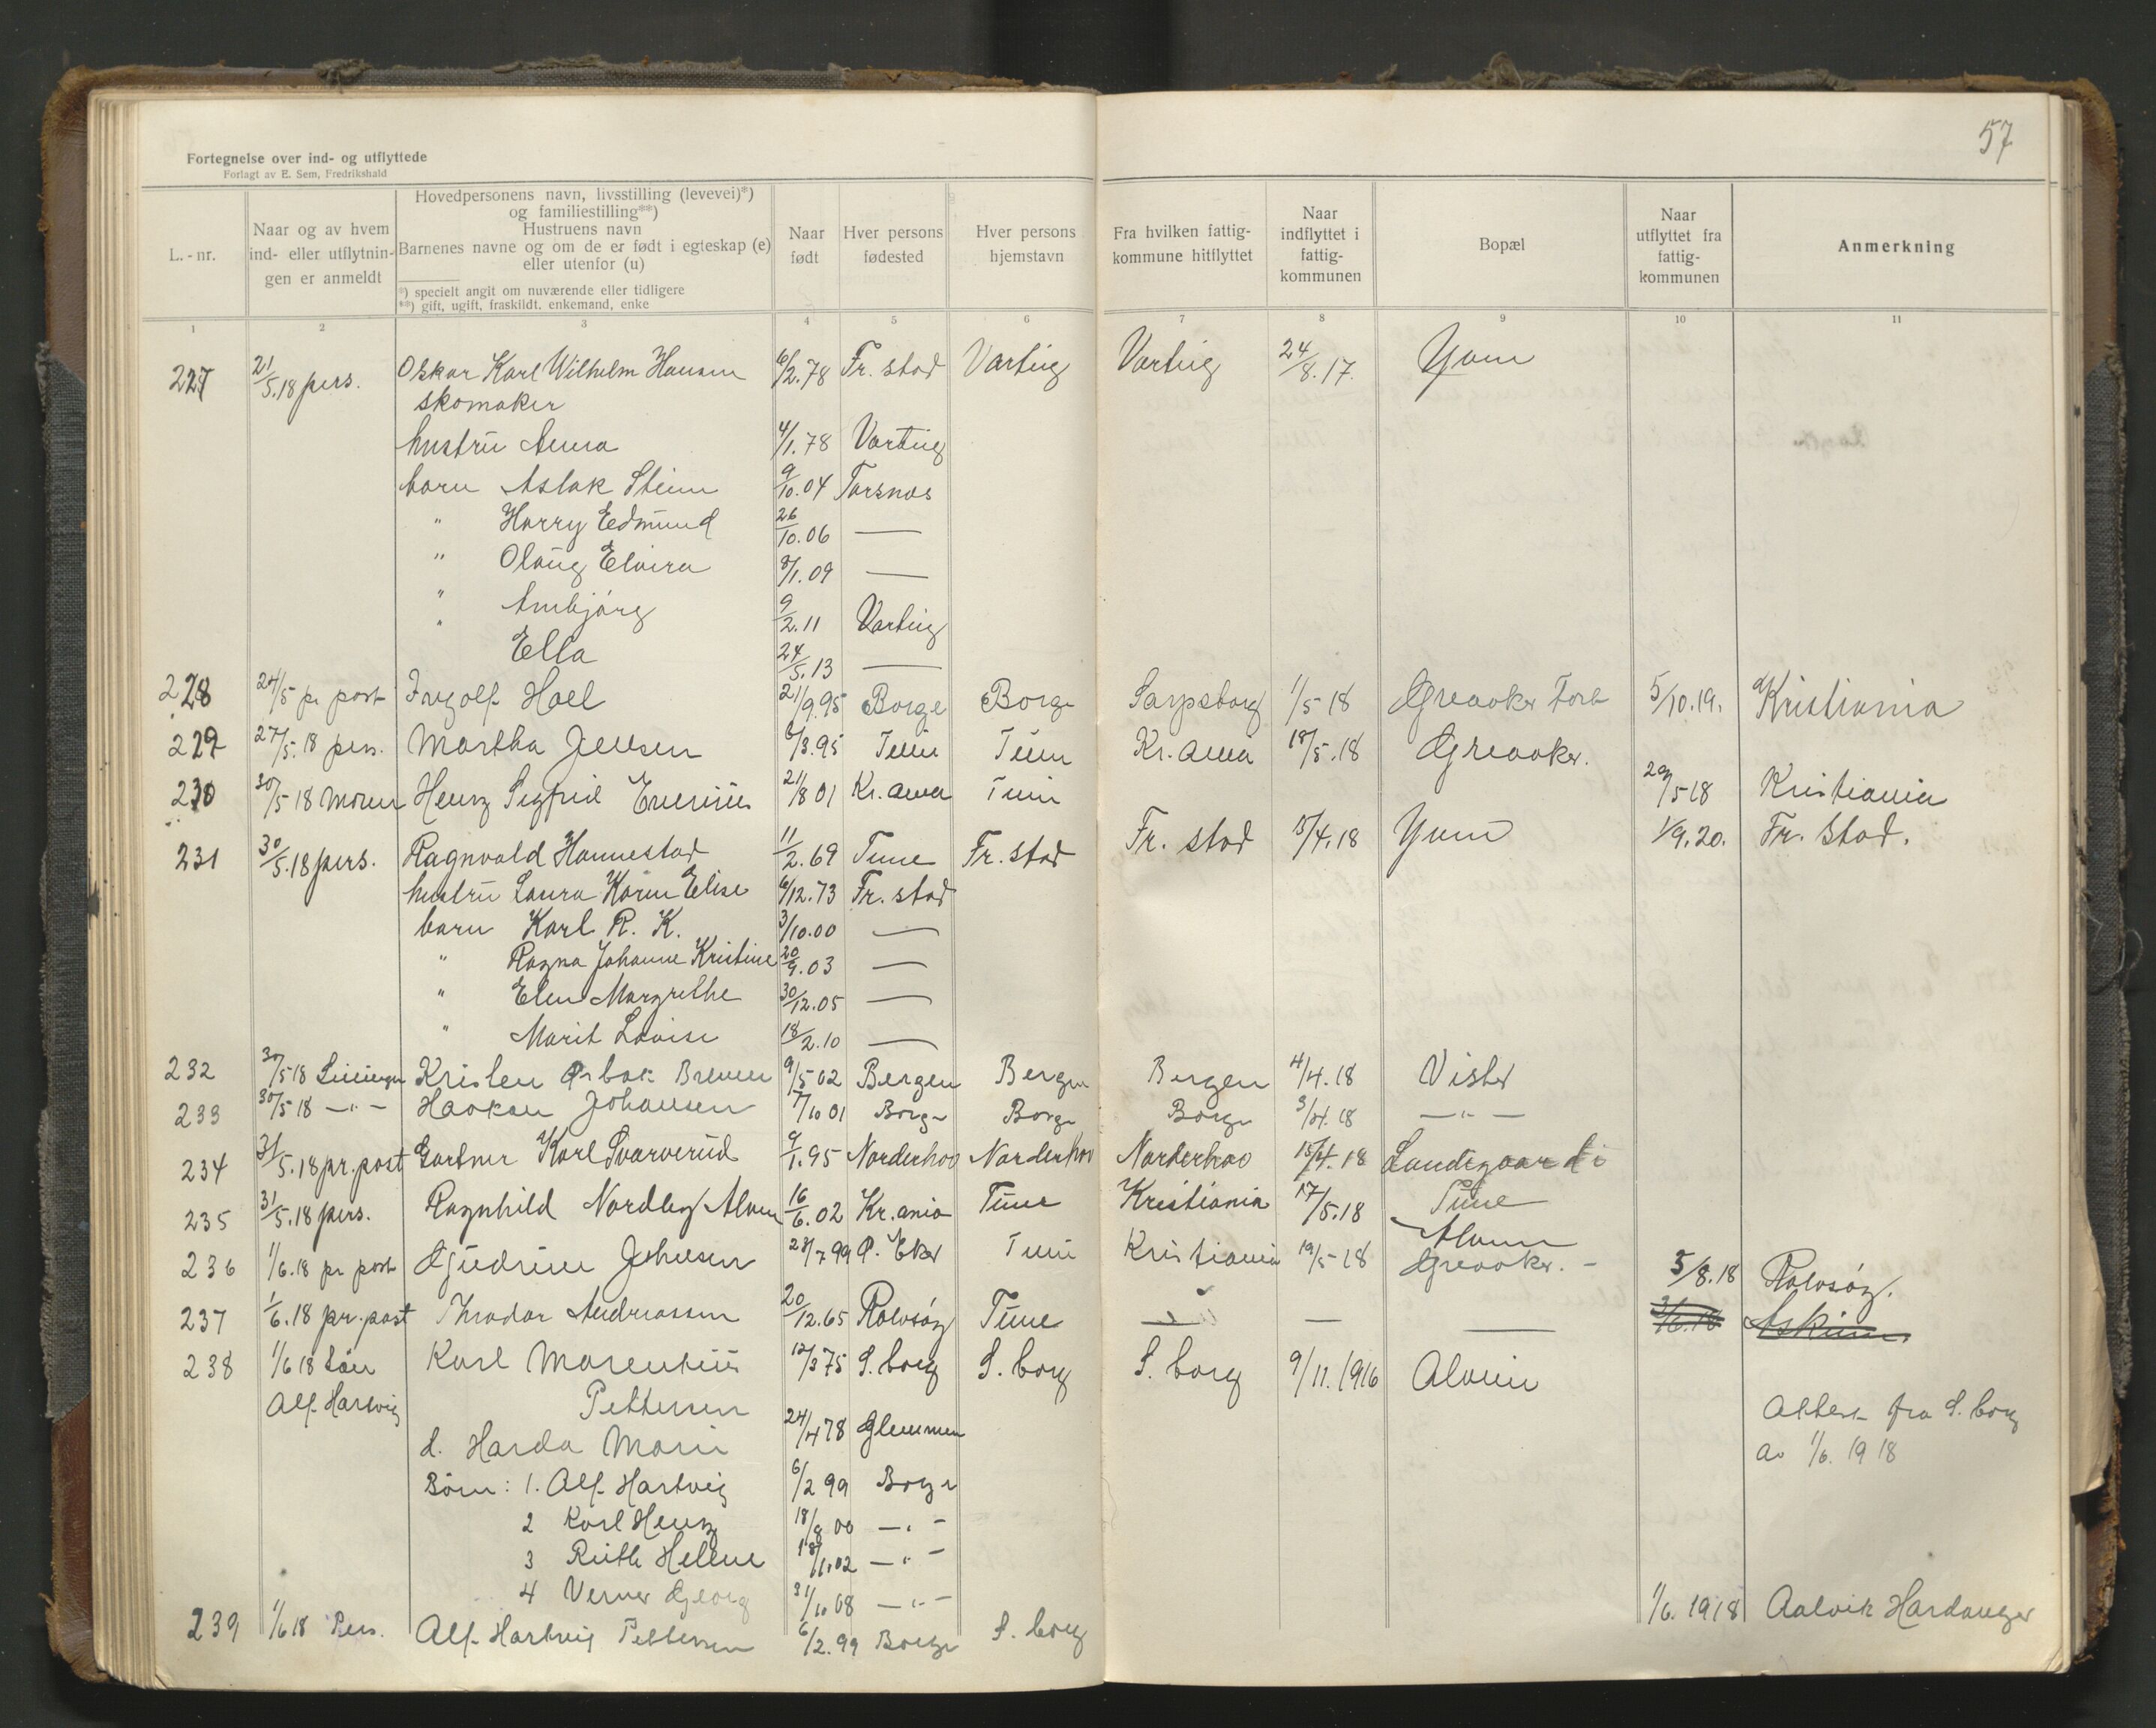 57
Fortegnelse over ind- og utflyttede
Forlagt av E. Sem, Fredrikshald
L.-nr.
Naar og av hvem ind- eller utflytnin-gen er anmeldt
Hovedpersonens navn, livsstilling (levevei)*)
og familiestilling**)
Hustruens navn
Barnenes navne og om de er født i egteskap (e)
eller utenfor (u)
*) specielt angit om nuværende eller tidligere
**) gift, ugift, fraskildt. enkemand, enke
Naar født
Hver persons fødested
Hver persons hjemstavn
Fra hvilken fattig-kommune hitflyttet
Naar indflyttet i fattig-kommunen
Bopæl
Naar utflyttet fra fattig-kommunen
Anmerkning
1 2 3 4 5 6 7 8 9 10 11
227 21/5.18 pers. Oskar Karl Wilhelm Hansen 6/2.78 Fr. stad Varteig Varteig 24/8.17. Yven
skomaker
hustru Anna 4/1.78 Varteig
barn Aslak Steen 9/10.04 Torsnes
" Harry Edmund 26/10.06 —
" Olaug Elvira 8/1.09 —
" Annbjørg 9/2.11 Varteig
" Ella 24/5.13 —
228 24/5 pr post Ingolf Hoel 21/9.95 Borge Borge Sarpsborg 1/5-18 Greaaker 5/10.19. Kristiania
229 27/5.18 pers. Martha Jensen 6/3.95 Tune Tune Kr.ania 18/5.18 Greaaker.
230 30/5 18 moren Henry Sigfried 21/8 01 Kr.ania Tune 29/5 18 Kristiania
231 30/5.18 pers. Ragnvald Hannestad 11/2.69 Tune Fr. stad Fr. stad 15/4.18 Yven 1/9.20. Fr. Stad.
hustru Laura Karen Elise 6/12.73 Fr. stad
barn Karl R. K. 3/10.00 —
" Ragna Johanne Kristine 20/9.03 —
" Elen Margrethe 30/12.05 —
" Marit Lovise 18/2.10 —
232 30/5 18 Kristen Bremer 9/5 02 Bergen Bergen Bergen 4/4.18 Vister
233 30/5 18 — " — Haakon Johansen 17/10 01 Borge Borge Borge 3/4.18 — " —
234 31/5.18 pr. post Gartner Karl Svarverud 9/1.95 Norderhov Norderhov Norderhov 15/4.18 Landsgaard i
235 31/5.18 pers. Ragnhild Nordby Alvim 16/6.02 Kr.ania Tune Kristiania 17/5.18 Tune
Alvim
236 1/6.18 pr post Gudrun Johnsen 28/7 99 Ø. Eker Tune Kristiania 19/5-18 Greaaker. - 5/8.18 Rolvsøy.
237 1/6.18 pr. post Thradar Andreassen 20/12.65 Rolvsøy Tune — — — 3/6.18 Askim.
238 1/6 18 Karl Marentius 12/3 75 S. borg S. borg S. borg 9/11.1916 Alvim
Alf Hartvig Pettersen
d. Harda Marie 24/4 78 Glemmen Attest fra S. borg
av 1/6. 1918
Børn: 1. Alf Hartvig 6/2 99 Borge
2 Karl Henry 18/8 00 — " —
3 Ruth Helene 18/11.02 — " —
4 Verner Georg 31/10 08 — " —
239 1/6 18 Pers. Alf Hartvig Pettersen 6/2.99 Borge S. borg 1/6.1918 Aalvik Hardanger